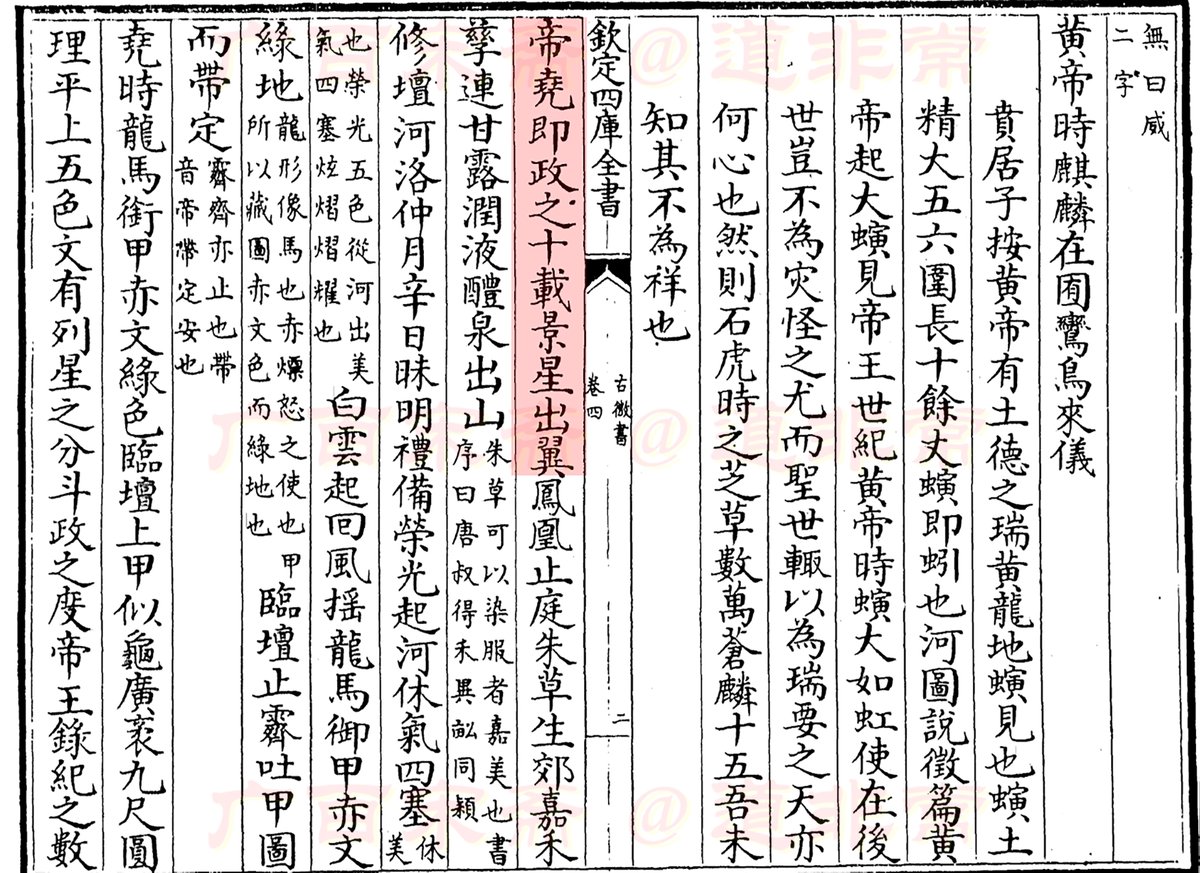 無曰威
二字
黄帝時麒麟在囿鸞鳥來儀
賁居子按黄帝有土德之瑞黄龍地螾見也螾土
精大五六圍長十餘丈螾即蚓也河圖說徵篇黄
帝起大螾見帝王世紀黄帝時螾大如虹使在後
世豈不為灾怪之尤而聖世輙以為瑞要之天亦
何心也然則石虎時之芝草數萬蒼麟十五吾未
知其不為祥也
欽定四庫全書
古微書
卷四
二
帝堯即政之十載景星出翼鳳凰止庭朱草生郊嘉禾
孳連甘露潤液醴泉出山
朱草可以染服者嘉美也書
序曰唐叔得禾異畝同穎
修壇河洛仲月辛日昧明禮備榮光起河休氣四塞
休
美
也榮光五色從河出美
氣四塞炫熠熠耀也
白雲起回風揺龍馬御甲赤文
緑地
龍形像馬也赤熛怒之使也甲
所以藏圖赤文色而緑地也
臨壇止霽吐甲圖
而帶定
霽齊亦止也帶
音帝帶定安也
堯時龍馬銜甲赤文緑色臨壇上甲似龜廣袤九尺圓
理平上五色文有列星之分斗政之度帝王錄紀之數
广百宋斋 @道非常
广百宋斋 @道非常
广百宋斋 @道非常